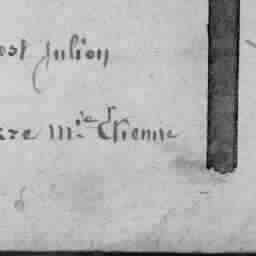 ost Julion
re M.ie Etienne